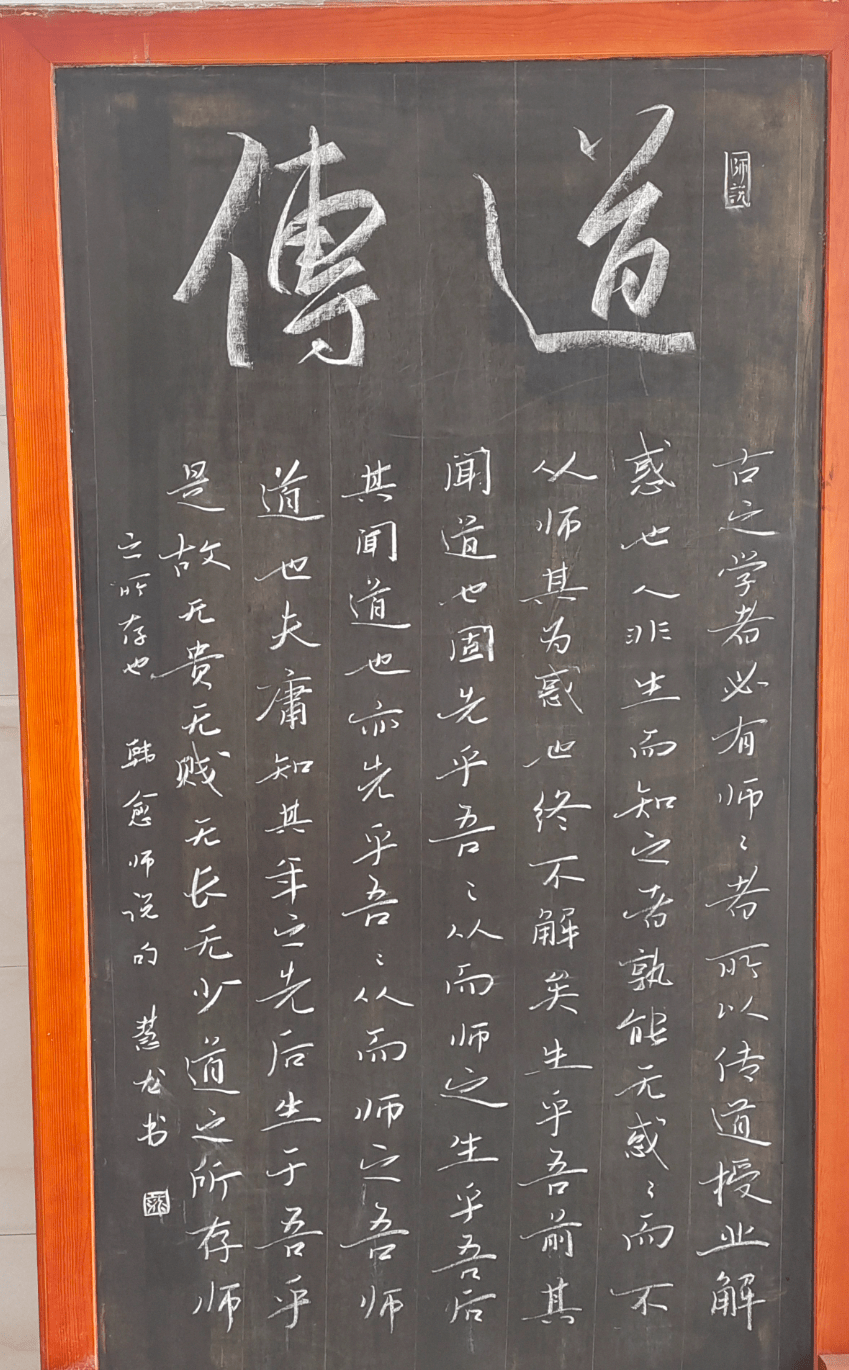 师説
道傳
古之学者必有师〻者所以传道授业解
惑也人非生而知之者孰能无惑〻而不
从师其为惑也终不解矣生乎吾前其
闻道也固先乎吾〻从而师之生乎吾后
其闻道也亦先乎吾〻从而师之吾师
道也夫庸知其年之先后生于吾乎
是故无贵无贱无长无少道之所存师
之所存也 韩愈师说句 慧龙书